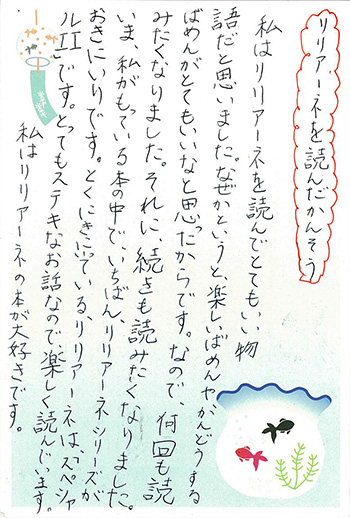 リリアーネを読んだかんそう
私はリリアーネを読んでとてもいい物
語だと思いました。なぜかというと、楽しいばめんや、かんどうする
ばめんがとてもいいなと思ったからです。なので、何回も読
みたくなりました。それに、続きも読みたくなりました。
いま、私がもっている本の中で、いちばん、リリアーネシリーズが
おきにいりです。とくにきにいている、リリアーネは、「スペシャ
ルII」です。とってもステキなお話なので、楽しく読んでいます。
私はリリアーネの本が大好きです。